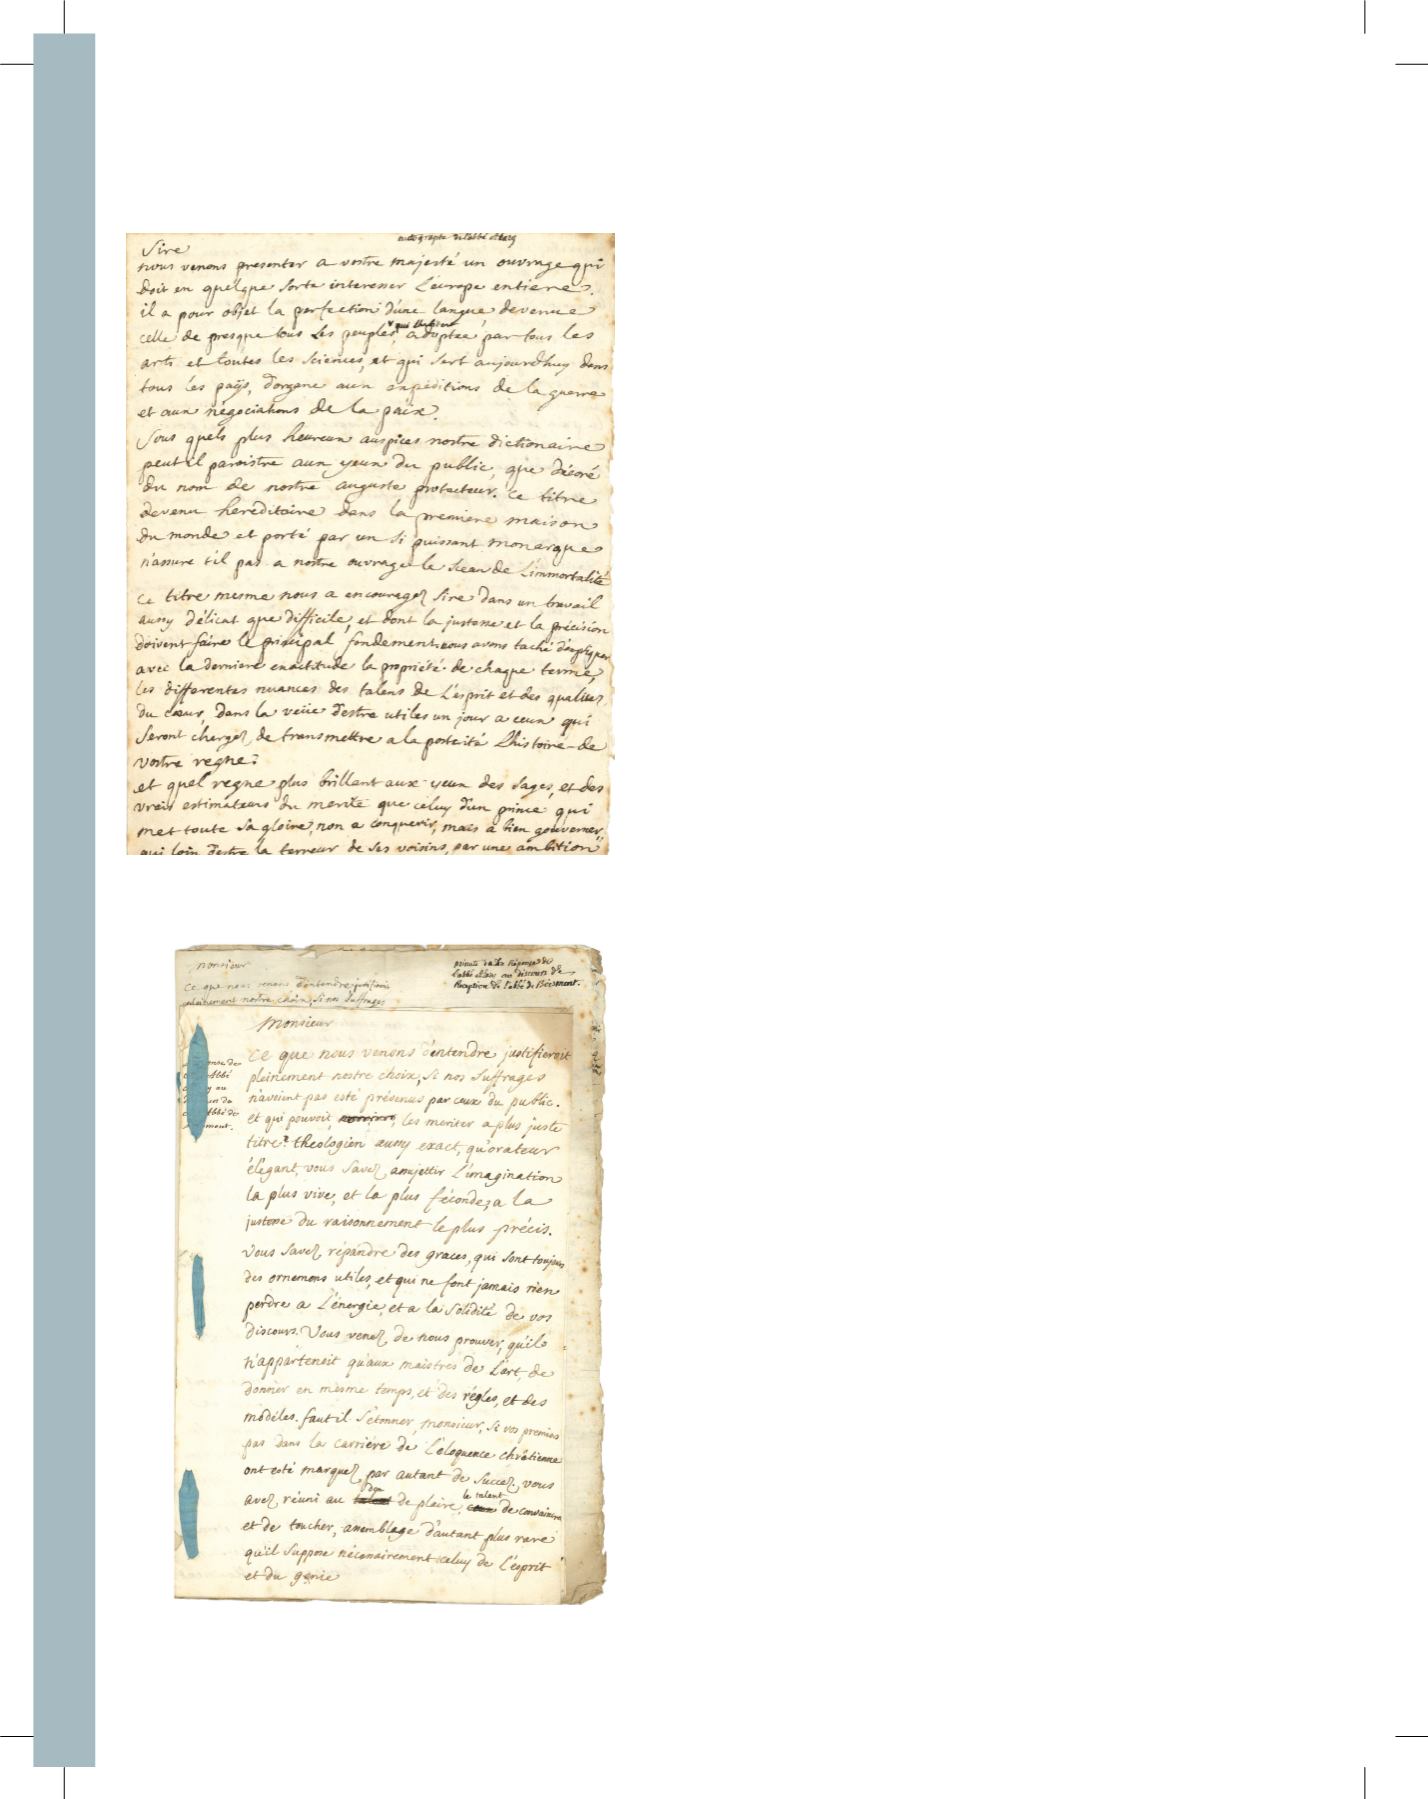 autographe de l'abbé Alary
Sire
nous venons presenter a vostre majesté un ouvrage qui
doit en quelque sorte interesser L'europe entiere.
il a pour objet la perfection d'une langue devenue
celle de presque tous les peuples, adoptée par tous les
arts et toutes les sciences, et qui sert aujourdhuy dans
tous les païs, d'organe aux expeditions de la guerre
et aux négociations de la paix.
Sous quels plus heureux auspices nostre dictionaire
peut il paroistre aux yeux du public, que décoré
du nom de nostre auguste protecteur. Ce titre
devenu hereditaire dans la premiere maison
du monde et porté par un si puissant monarque
n'assure t'il pas a nostre ouvrage le sceau de L'immortalité
Ce titre mesme nous a encouragez Sire dans un travail
aussy délicat que difficile, et dont la justesse et la précision
doivent faire le principal fondement. nous avons taché d'expliquer
avec la derniere exactitude la propriété de chaque terme,
les differentes nuances des talens de L'esprit et des qualitez
du cœur, dans la veüe d'estre utiles un jour a ceux qui
Seront chargez de transmettre a la posterité L'histoire de
vostre regne.
et quel regne plus brillant aux yeux des sages, et des
vrais estimateurs du merite que celuy d'un prince qui
met toute sa gloire, non a conquerir, mais a bien gouverner,
qui loin d'estre la terreur de ses voisins, par une ambition
Monsieur
Ce que nous venons d'entendre justifieroit
pleinement nostre choix, si nos suffrages
minute de la Réponse de
l'abbé Alary au discours de
Réception de l'abbé de Boismont.
Monsieur
Ce que nous venons d'entendre justifieroit
pleinement nostre choix, si nos suffrages
n'avoient pas esté prévenus par ceux du public.
et qui pouvoit, les meriter a plus juste
titre? theologien aussy exact, qu'orateur
élégant, vous savez assujettir L'imagination
la plus vive, et la plus féconde, a la
justesse du raisonnement le plus précis.
Vous savez répandre des graces, qui sont toujours
des ornemens utiles, et qui ne font jamais rien
perdre a L'énergie, et a la solidité de vos
discours. Vous venez de nous prouver, qu'il
n'appartenoit qu'aux maistres de L'art, de
donner en mesme temps, et des régles, et des
modéles. faut il s'étonner, monsieur, si vos premiers
pas dans la carriére de L'éloquence chrêtienne
ont esté marquez par autant de succez. vous
avez réuni au don de plaire, le talent de convaincre
et de toucher, assemblage d'autant plus rare
qu'il suppose nécessairement celuy de L'esprit
et du genie